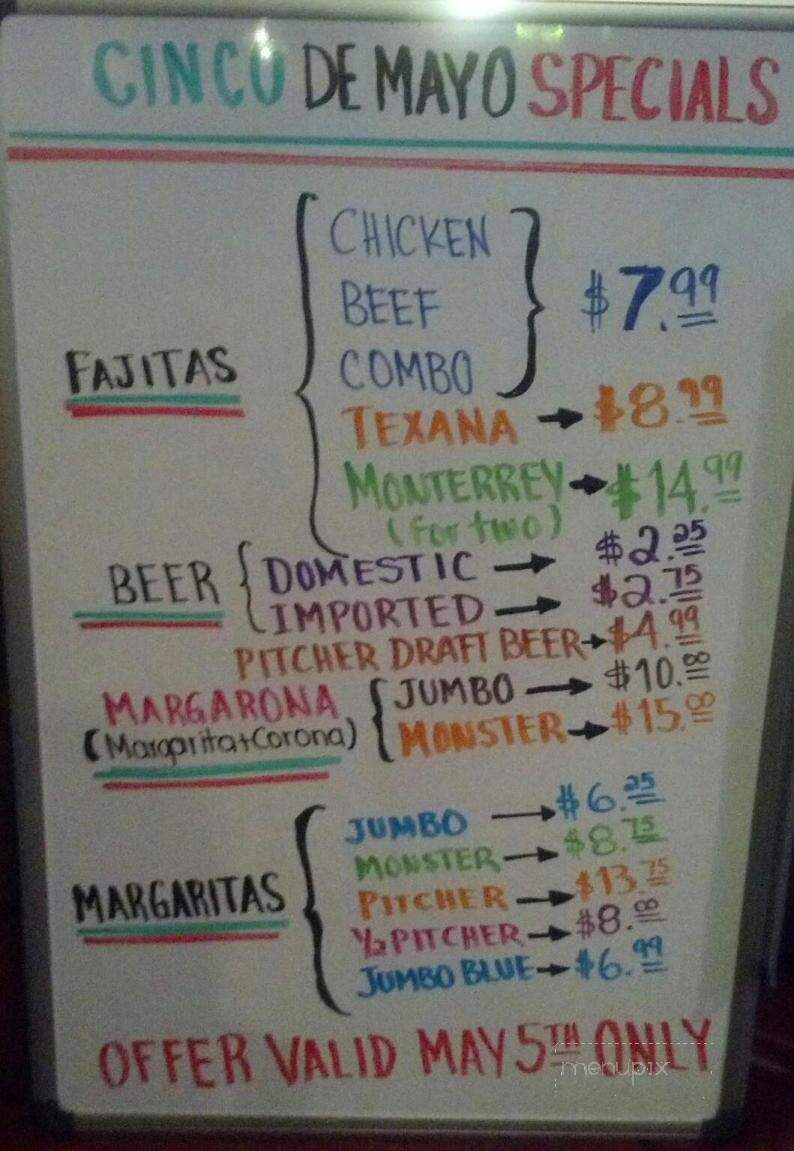 CINCO DE MAYO SPECIALS
FAJITAS
CHICKEN
BEEF
COMBO
$7.99
TEXANA → $8.99
MONTERREY → $14.99
(for two)
BEER
DOMESTIC → $2.25
IMPORTED → $2.75
PITCHER DRAFT BEER → $4.99
MARGARONA
(Margarita+Corona)
JUMBO → $10.00
MONSTER → $15.00
MARGARITAS
JUMBO → $6.25
MONSTER → $8.75
PITCHER → $13.75
1/2 PITCHER → $8.00
JUMBO BLUE → $6.99
OFFER VALID MAY 5TH ONLY
menupix